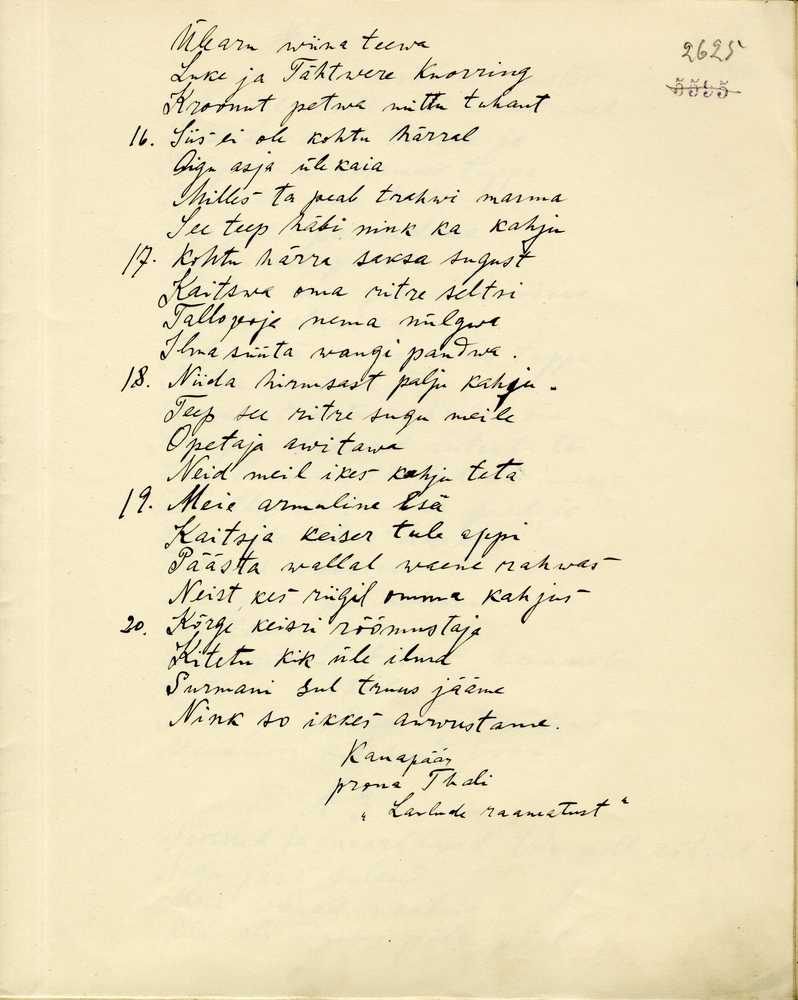 2625
5595
Ülearu wiina teewa
Luke ja Tähtwere Knorring
Kroonut petwa mittu tuhant
16. Siis ei ole kohtu härral
Aigu asja üle kaia
Milles ta peab trahwi masma
See teep häbi nink ka kahju
17. Kohtu härra saksa sugust
Kaitswa oma ritre seltsi
Tallopoja nema nülgwa
Ilma süüta wangi pandwa.
18. Niida hirmsast palju kahju.
Teep see ritre sugu meile
Opetaja awitawa
Neid meil ikes kahju tetä
19. Meie armuline Esä
Kaitsja keiser tule appi
Päästa wallal waene rahwas
Neist kes riigil omma kahjus
20. Kõrge keisri rõõmustaja
Kitetu kik üle ilma
Surmani sul truus jääme
Nink so ikkes auwustame.
Kanapää
proua Thali
„Laulude raamatust"